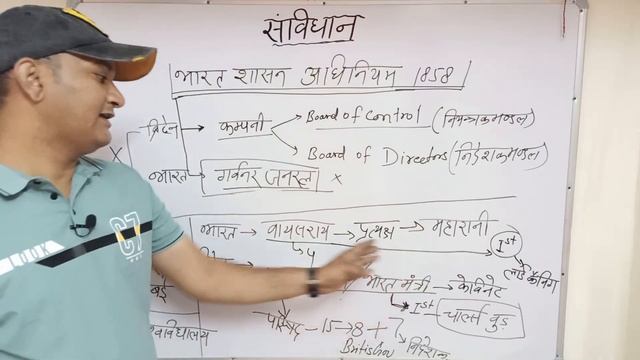 संविधान
भारत शासन अधिनियम 1858
ब्रिटेन → कम्पनी
Board of Control (नियन्त्रकमण्डल)
Board of Directors (निर्देशकमण्डल)
भारत → गर्वनर जनरल ×
भारत → वायसराय → प्रत्यक्ष → महारानी
Ist
लार्ड कैनिंग
भारत मंत्री → केबिनेट
Ist चार्ल्स वुड
परिषद – 15 → 8 + 7
British Gov
C7